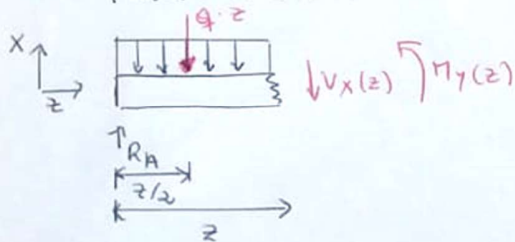 q · z
x
z
Vx(z)
My(z)
RA
z/2
z